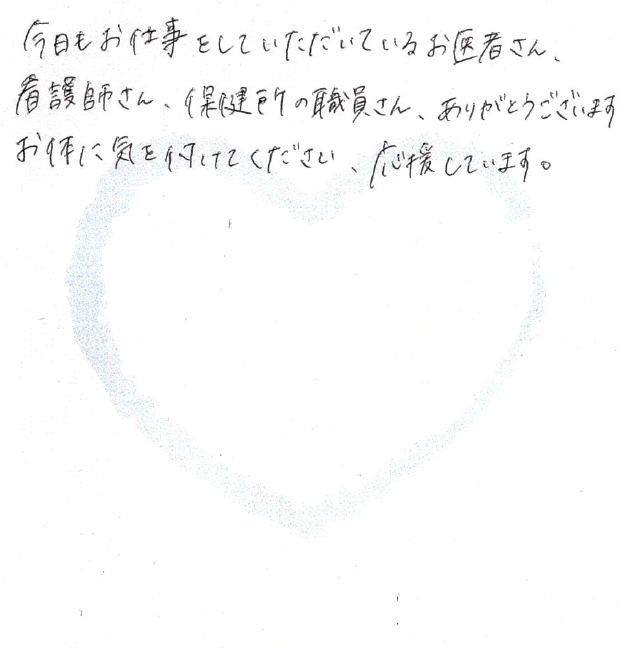 今日もお仕事をしていただいているお医者さん、
看護師さん、保健所の職員さん、ありがとうございます
お体に気を付けてください、応援しています。